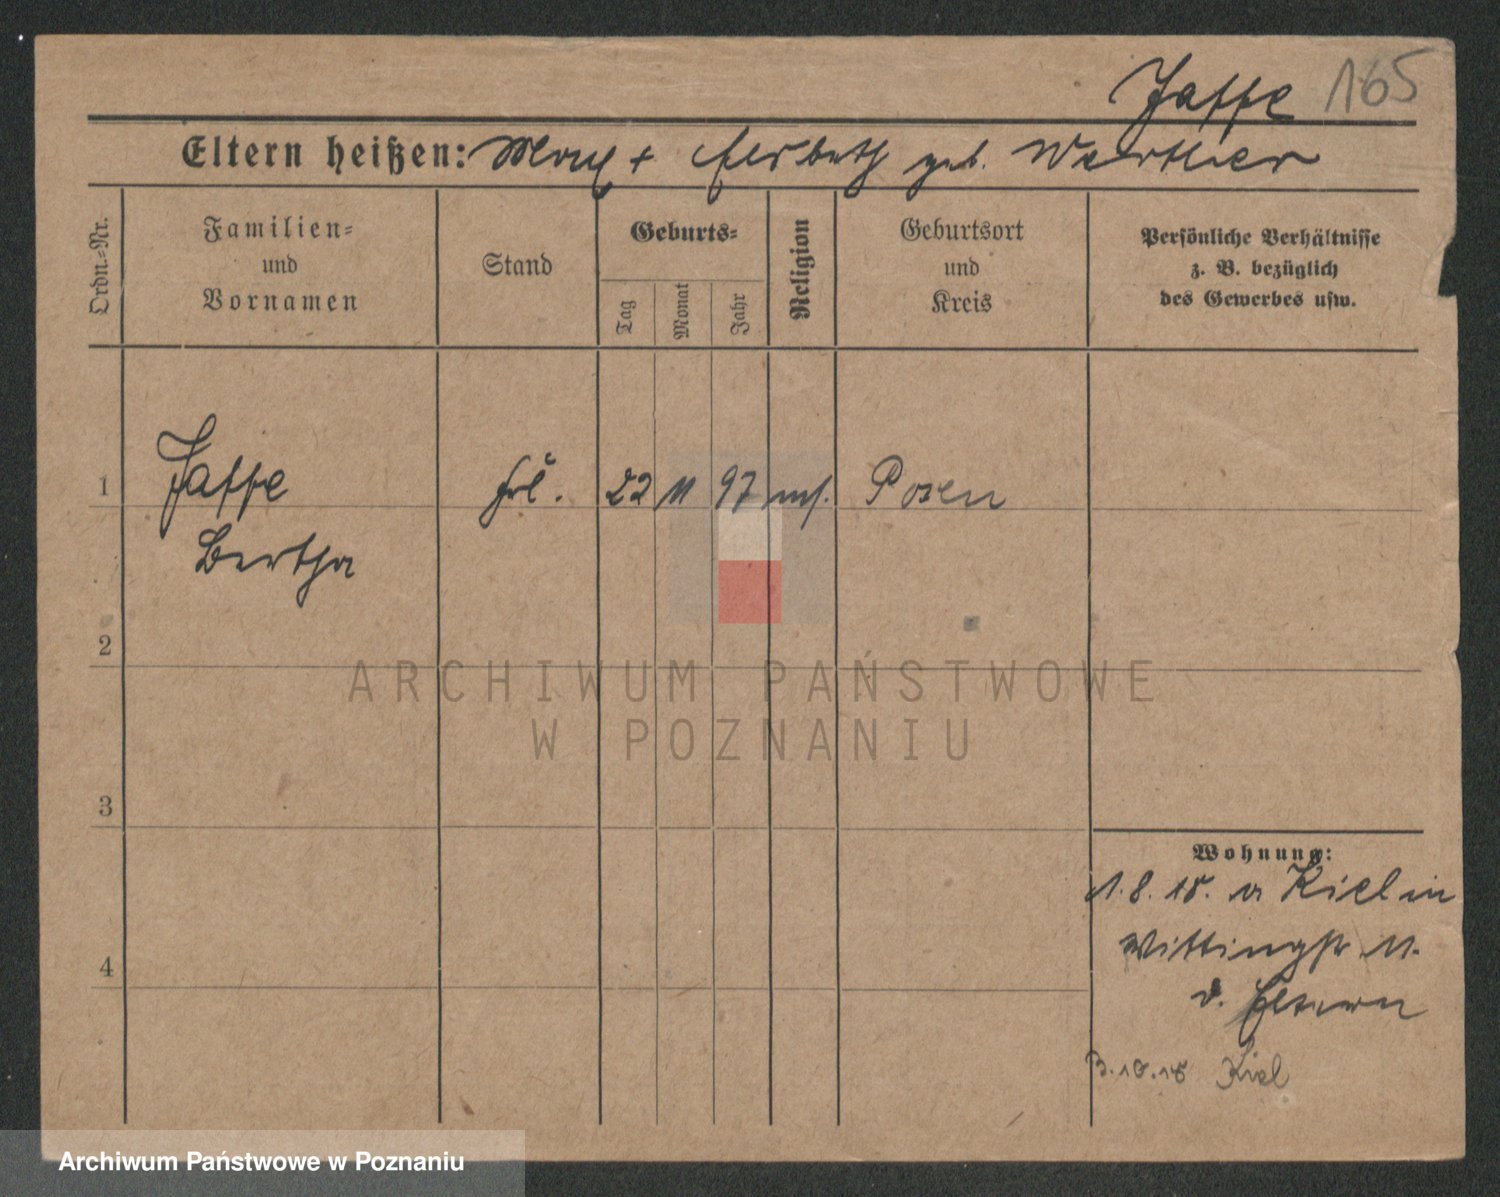 Jaffe 165
Eltern heißen: Max + Elsbeth geb. Werther
Ordn.-Nr.
Familien-
und
Vornamen
Stand
Geburts-
Tag
Monat
Jahr
Religion
Geburtsort
und
Kreis
Persönliche Verhältnisse
z. B. bezüglich
des Gewerbes usw.
1 Jaffe frl. 22 11 97 mos. Posen
Bertha
2
3
4
Wohnung:
1.8.18. v Kiel in
Wittingstr. 11.
b. Eltern
3.10.18 Kiel
ARCHIWUM PAŃSTWOWE
W POZNANIU
Archiwum Państwowe w Poznaniu